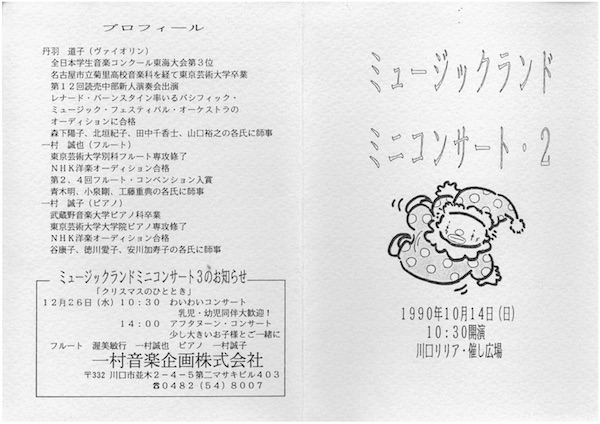 プロフィール
丹羽 道子(ヴァイオリン)
全日本学生音楽コンクール東海大会第3位
名古屋市立菊里高校音楽科を経て東京芸術大学卒業
第12回読売中部新人演奏会出演
レナード・バーンスタイン率いるパシフィック・
ミュージック・フェスティバル・オーケストラの
オーディションに合格
森下陽子、北垣紀子、田中千香士、山口裕之の各氏に師事
一村 誠也(フルート)
東京芸術大学別科フルート専攻修了
NHK洋楽オーディション合格
第2、4回フルート・コンベンション入賞
青木明、小泉剛、工藤重典の各氏に師事
一村 誠子(ピアノ)
武蔵野音楽大学ピアノ科卒業
東京芸術大学大学院ピアノ専攻修了
NHK洋楽オーディション合格
谷康子、徳川愛子、安川加寿子の各氏に師事
ミュージックランドミニコンサート3のお知らせ
「クリスマスのひととき」
12月26日(水)10:30 わいわいコンサート
乳児・幼児同伴大歓迎!
14:00 アフタヌーン・コンサート
少し大きいお子様とご一緒に
フルート 渥美敏行 一村誠也 ピアノ 一村誠子
一村音楽企画株式会社
〒332 川口市並木2-4-5第二マサキビル403
☎0482(54)8007
ミュージックランド
ミニコンサート・2
1990年10月14日(日)
10:30開演
川口リリア・催し広場